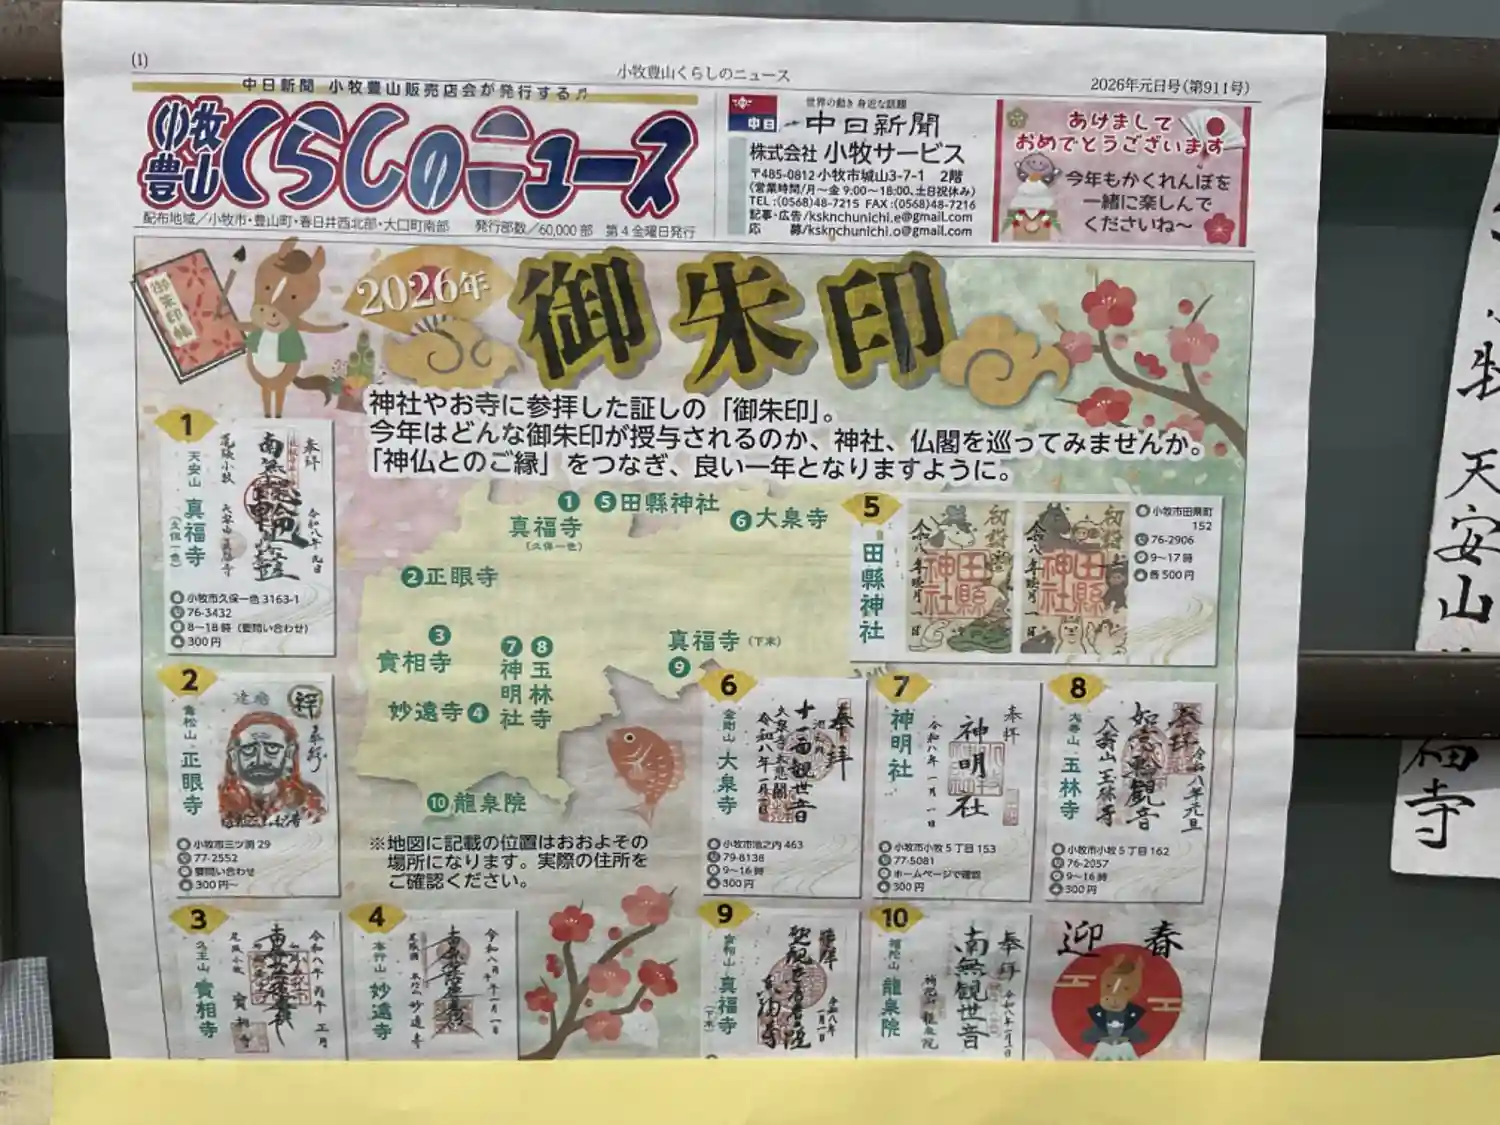 (1)
小牧豊山くらしのニュース
2026年元日号(第911号)
中日新聞 小牧豊山販売店会が発行する♬
小牧豊山くらしのニュース
配布地域／小牧市・豊山町・春日井西北部・大口町南部 発行部数／60,000部 第4金曜日発行
中日
世界の動き 身近な話題
中日新聞
株式会社 小牧サービス
〒485-0812 小牧市城山3-7-1 2階
(営業時間/月～金 9:00～18:00、土日祝休み)
TEL:(0568)48-7215 FAX:(0568)48-7216
記事・広告/ksknchunichi.e@gmail.com
応 募/ksknchunichi.o@gmail.com
あけまして
おめでとうございます
今年もかくれんぼを
一緒に楽しんで
くださいね～
御朱印帳
2026年
御朱印
神社やお寺に参拝した証しの「御朱印」。
今年はどんな御朱印が授与されるのか、神社、仏閣を巡ってみませんか。
「神仏とのご縁」をつなぎ、良い一年となりますように。
1
天安山 真福寺
(久保一色)
奉拝
小牧市久保一色3163-1
76-3432
8～18時（要問い合わせ）
300円
1 真福寺
(久保一色)
5 田縣神社
6 大泉寺
2 正眼寺
3 實相寺
7 神明社
8 玉林寺
真福寺 (下末)
9
妙遠寺 4
10 龍泉院
※地図に記載の位置はおおよその
場所になります。実際の住所を
ご確認ください。
5
田縣神社
田縣神社
田縣神社
小牧市田県町
152
76-2906
9～17時
各500円
2
正眼寺
小牧市三ツ渕29
77-2552
要問い合わせ
300円～
6
金剛山 大泉寺
奉拝
十一面観世音
令和八年一月一日
小牧市池之内463
79-8138
9～16時
300円
7
神明社
奉拝
神明社
令和八年一月一日
小牧市小牧5丁目153
77-5081
ホームページで確認
300円
8
玉林寺
令和八年元旦
小牧市小牧5丁目162
76-2057
9～16時
300円
3
實相寺
4
妙遠寺
9
真福寺
(下末)
10
龍泉院
奉拝
南無観世音
迎春
天安山
福寺